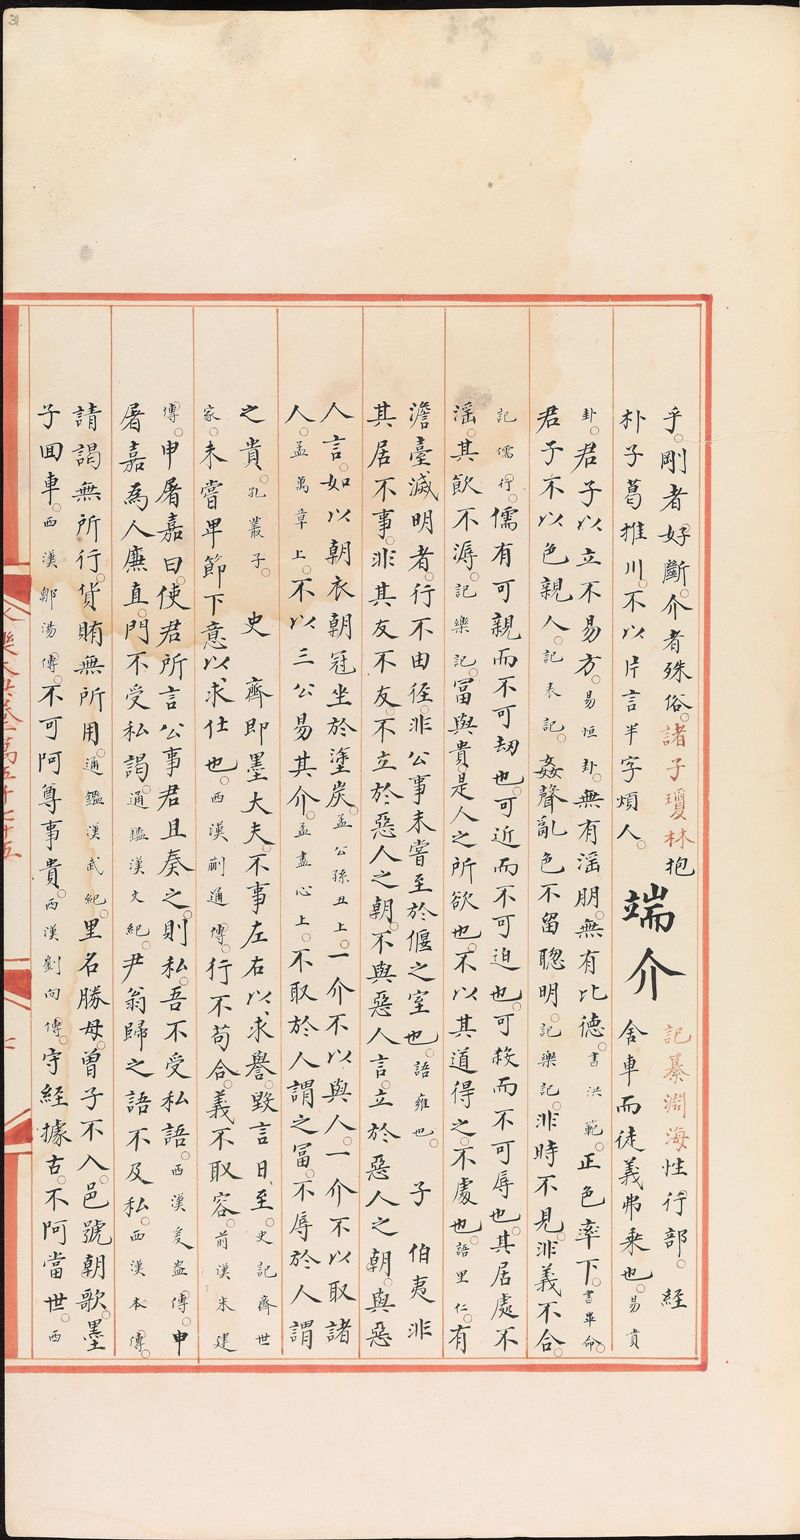 乎。剛者好斷。介者殊俗。諸子瓊林抱
朴子葛推川。不以片言半字煩人。端介記纂淵海性行部。經
舍車而徒義弗乘也。易賁
卦。君子以立不易方。易恒卦。無有淫朋。無有比德。書洪範。正色率下。書畢命。
君子不以色親人。記表記。姦聲亂色不留聰明。記樂記。非時不見。非義不合。
記儒行。儒有可親而不可刧也。可近而不可迫也。可殺而不可辱也。其居處不
淫。其飲不溽。記樂記。冨與貴。是人之所欲也。不以其道得之。不處也。語里仁。有
澹臺滅明者。行不由徑。非公事未嘗至於偃之室也。語雍也。子 伯夷非
其君不事。非其友不友。不立於惡人之朝。不與惡人言。立於惡人之朝。與惡
人言。如以朝衣朝冠坐於塗炭。孟公孫丑上。一介不以與人。一介不以取諸
人。孟萬章上。不以三公易其介。孟盡心上。不取於人謂之冨。不辱於人謂
之貴。孔叢子。史 齊即墨大夫。不事左右以求譽。毀言日至。史記齊世
家。未嘗卑節下意以求仕也。西漢蒯通傳。行不苟合。義不取容。前漢朱建
傳。申屠嘉曰。使君所言公事君且奏之。則私。吾不受私語。西漢爰盎傳。申
屠嘉為人廉直。門不受私謁。通鑑漢文紀。尹翁歸之語不及私。西漢本傳。
請謁無所行。貨賄無所用。通鑑漢武紀。里名勝母。曾子不入。邑號朝歌。墨
子回車。西漢鄒湯傳。不可阿尊事貴。西漢劉向傳。守經據古。不阿當世。西